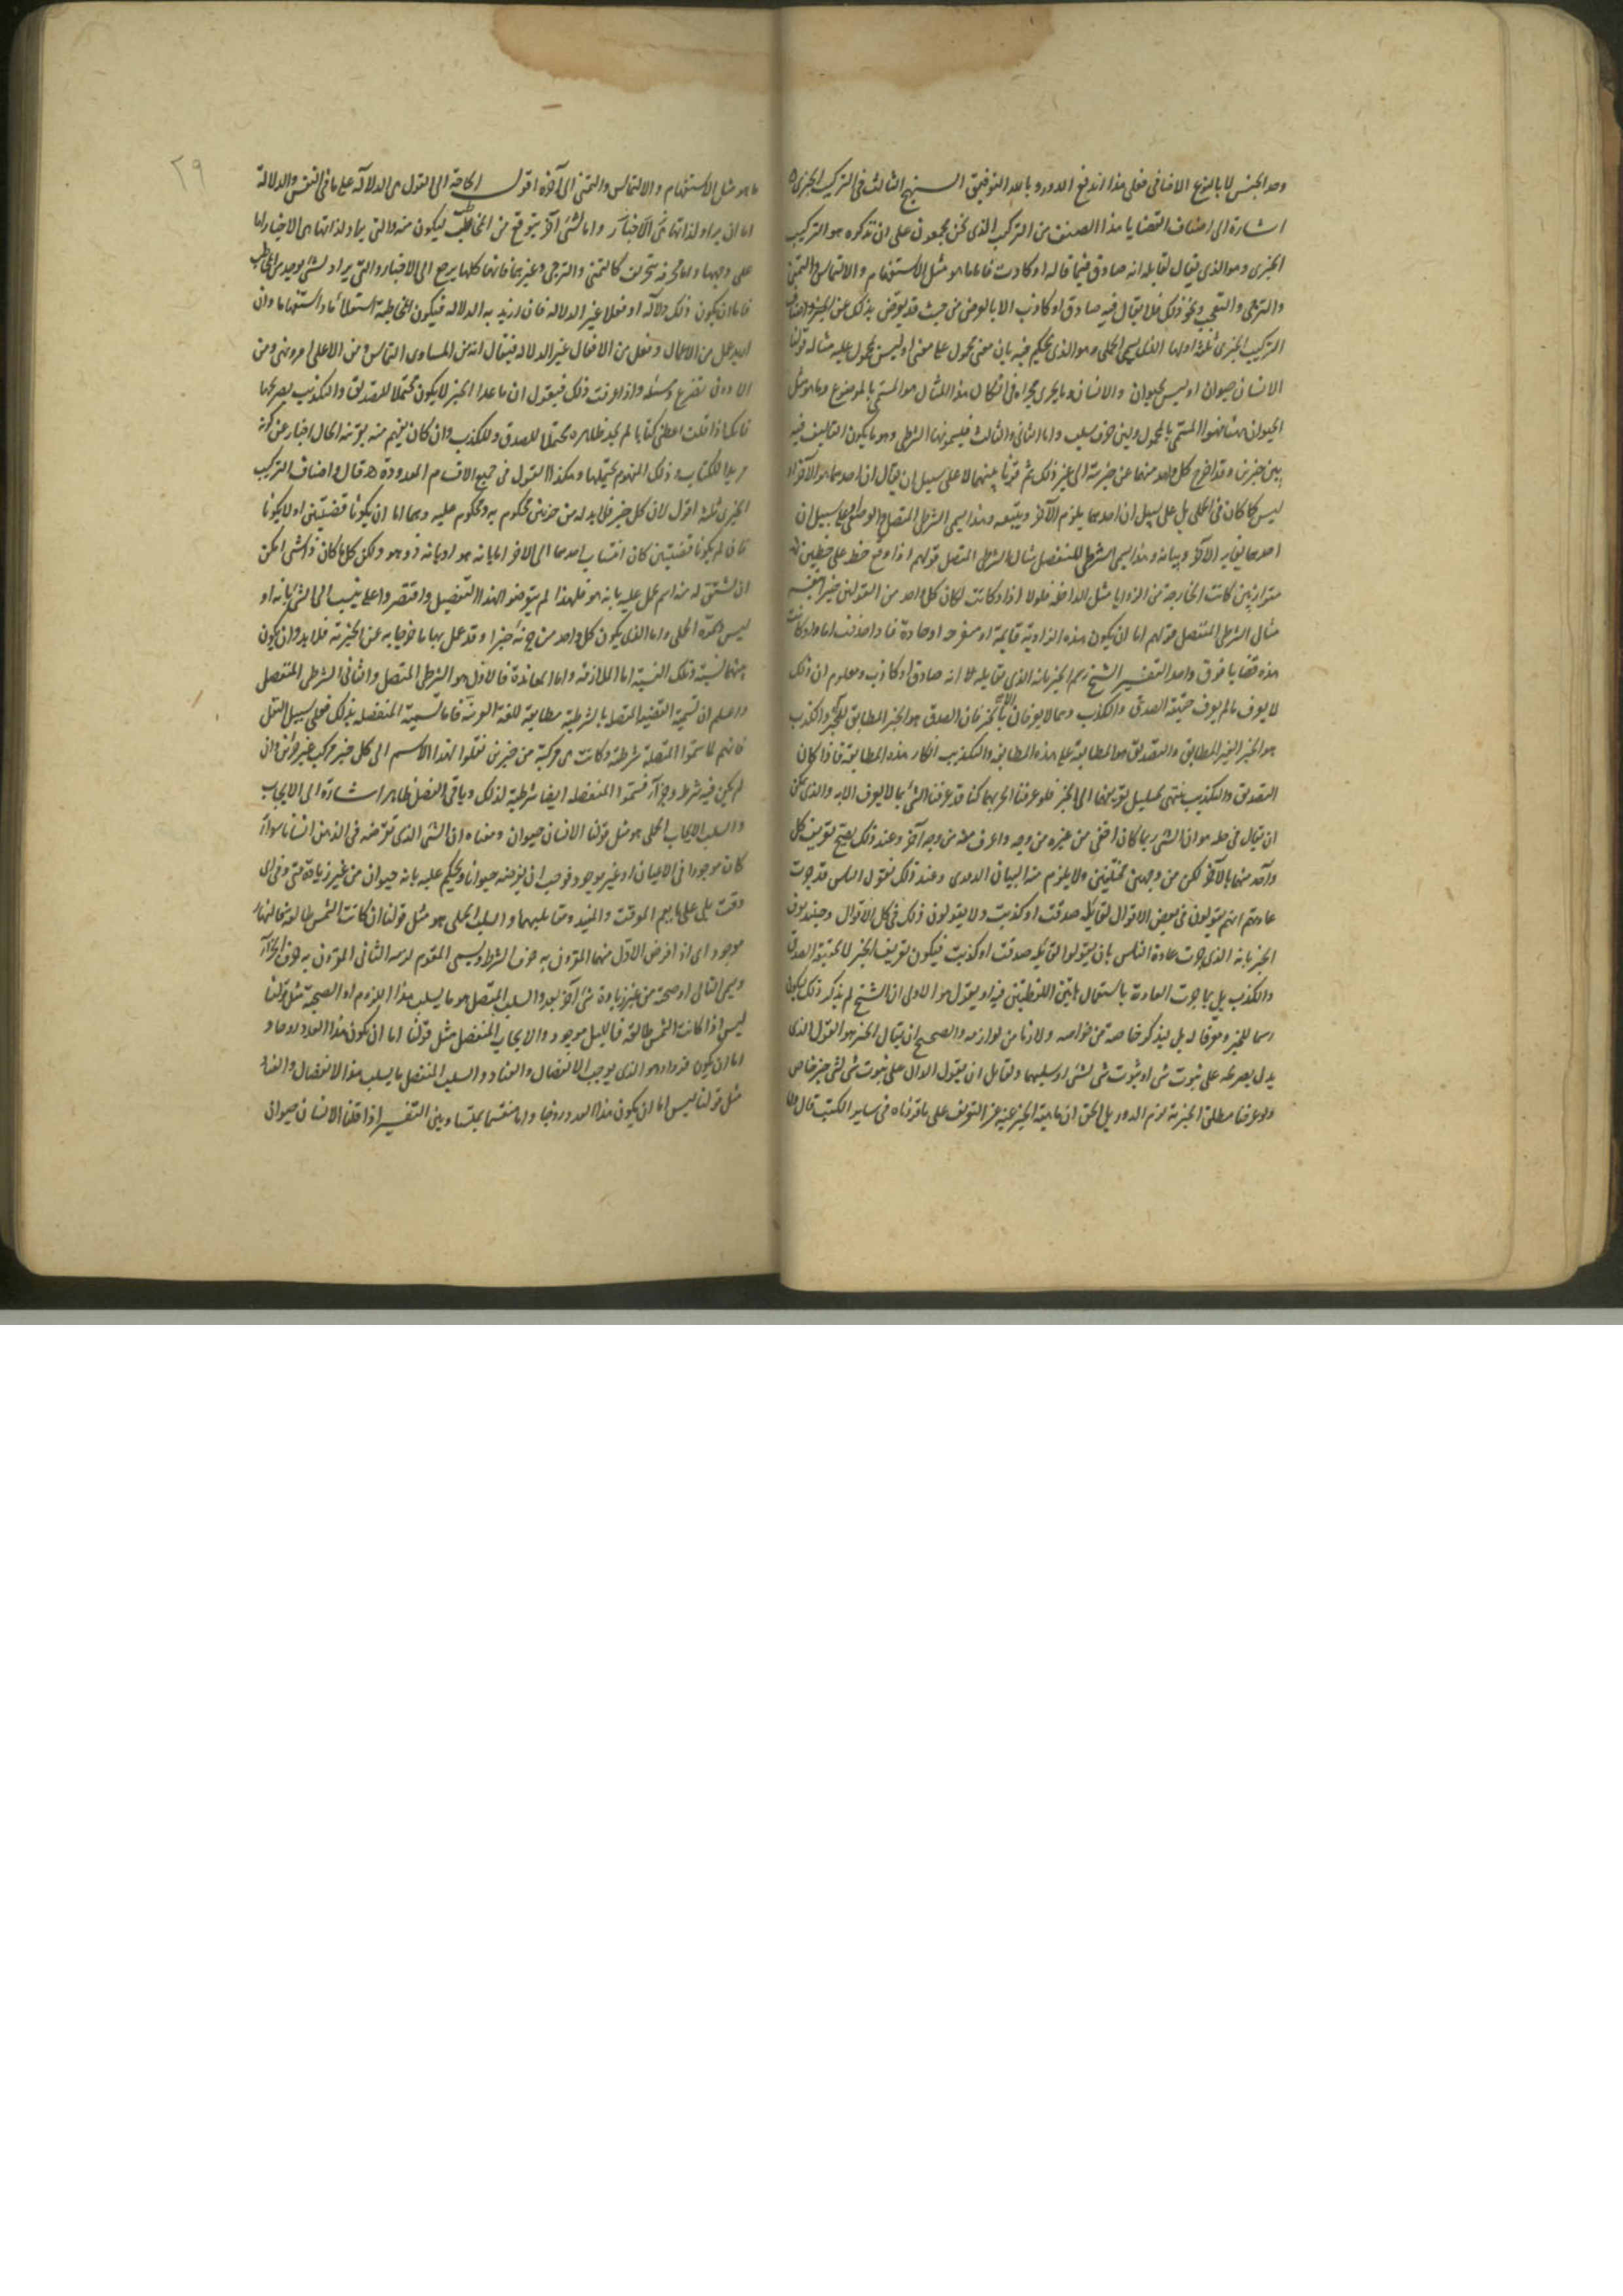 وحد الجنس لا بالنوع الاضافى فعلى هذا اندفع الدور وبالله التوفيق النهج الثالث فى التركيب الخبرى
اشارة الى اصناف القضايا هذا الصنف من التركيب الذى نحن مجمعون على ان نذكره هو التركيب
الخبرى وهو الذى يقال لقايله انه صادق فيما قاله او كاذب فاما ما هو مثل الاستفهام والالتماس والتمنى
والترجى والتعجب ونحو ذلك فلا يقال فيه صادق او كاذب الا بالعرض من حيث قد يعرض بذلك عن الخبر واصناف
التركيب الخبرى ثلثة اولها الذى يسمى الحملى وهو الذى يحكم فيه بان معنى محمول على معنى او ليس بمحمول عليه مثاله قولنا
الانسان حيوان او ليس بحيوان والانسان وما يجرى مجراه فى اشكال هذا المثال هو المسمى بالموضوع وما هو مثل
الحيوان ههنا فهو المسمى بالمحمول وليس حرف سلب واما الثانى والثالث فيسمونهما الشرطى وهو ما يكون التاليف فيه
بين خبرين وقد اخرج كل واحد منهما عن خبريته الى غير ذلك ثم قرن بينهما لا على سبيل ان يقال ان احدهما هو الآخر
ليس كما كان فى الحملى بل على سبيل ان احدهما يلزم الآخر ويتبعه وهذا يسمى الشرطى المتصل والوضعى وعلى سبيل ان
احدهما يعاند الآخر ويباينه وهذا يسمى الشرطى المنفصل مثال الشرطى المتصل قولهم اذا وقع خط على خطين
متوازيين كانت الخارجة من الزوايا مثل الداخلة فلولا اذا وكانت لكان كل واحد من القولين خبرا بنفسه
مثال الشرطى المنفصل قولهم اما ان يكون هذه الزاوية قايمة او منفرجة او حادة فاذا حذفت اما واو كانت
هذه قضايا فوق واحد التفسير الشيخ رسم الخبر بانه الذى يقال لقايله انه صادق او كاذب ومعلوم ان ذلك
لا يعرف ما لم يعرف حقيقة الصدق والكذب وهما لا يعرفان الا بالخبر فان الصدق هو الخبر المطابق للمخبر والكذب
هو الخبر الغير المطابق والتصديق هو المطابقة على هذه المطابقة والتكذيب انكار هذه المطابقة فاذا كان
التصديق والتكذيب ينتهى تحليل تعريفهما الى الخبر فلو عرفنا الخبر بهما كنا قد عرفنا الشئ بما لا يعرف الا به والذى يمكن
ان يقال فى حله هو ان الشئ ربما كان اخفى من غيره من وجه واعرف منه من وجه آخر وعند ذلك يصح تعريف كل
واحد منهما بالآخر لكن من وجهين مختلفين ولا يلزم منه البيان الدورى وعند ذلك نقول الناس قد جرت
عادتهم انهم يقولون فى بعض الاقوال لقايله صدقت او كذبت ولا يقولون ذلك فى كل الاقوال وحينئذ يعرف
الخبر بانه الذى جرت عادة الناس بان يقولوا لقايله صدقت او كذبت فيكون تعريف الخبر لا بحقيقة الصدق
والكذب بل بما جرت العادة باستعمال هاتين اللفظتين فيه او يقول هو الاولى ان الشيخ لم يذكر ذلك ليكون
رسما للخبر ومعرفا له بل ليذكر خاصة من خواصه ولازما من لوازمه والصحيح ان يقال الخبر هو القول الذى
يدل بصريحه على ثبوت شئ او ثبوت شئ لشئ او سلبهما ولقايل ان يقول الدال على ثبوت شئ لشئ خبر خاص
ولو عرفنا مطلق الخبر به لزم الدور بل الحق ان ماهية الخبر غنية عن التعريف على ما قررناه فى ساير الكتب قال
ما هو مثل الاستفهام والالتماس والتمنى الى آخره اقول الحاجة الى القول هى الدلالة على ما فى النفس والدلالة
اما ان يراد لذاتها هى الاخبار واما لشئ آخر يتوقع من المخاطب ليكون منه والتى يراد لذاتها هى الاخبار اما
على وجهها واما محرفة تحريف كالتمنى والترجى وغيرهما فانها كلها يرجع الى الاخبار والتى يراد لشئ يوجد من المخاطب
فاما ان يكون ذلك دلالة او فعلا غير الدلالة فان اريد به الدلالة فيكون المخاطبة استعلاما واستفهاما وان
اريد عمل من الاعمال وفعل من الافعال غير الدلالة فيقال انه من المساوى التماس ومن الاعلى امر ونهى ومن
الادون تضرع ومسئلة واذا عرفت ذلك فنقول ان ما عدا الخبر لا يكون محتملا للتصديق والتكذيب بصريحها
فانك اذا قلت اعطنى كتابا لم يجد ظاهره محتملا للصدق وللكذب وان كان يفهم منه بقرينة الحال اخبار عن كونه
مريدا للكتاب وذلك المفهوم يحتملهما وهكذا القول فى جميع الاقسام المعدودة قال واصناف التركيب
الخبرى ثلثة اقول لان كل خبر فلا بد له من جزءين محكوم به ومحكوم عليه وهما اما ان يكونا قضيتين او لا يكونا
فان لم يكونا قضيتين كان انتساب احدهما الى الاخر اما بانه هو او بانه ذو هو ولكن كل ما كان ذا شئ امكن
ان يشتق له منه اسم يحمل عليه بانه هو فلهذا لم يتعرضوا لهذا التفصيل واقتصروا على ينسب الى الشئ بانه او
ليس هو الحملى واما الذى يكون كل واحد من جزئه خبرا وقد عمل بهما ما خرجا به عن الخبرية فلا بد وان يكون
بينهما نسبة وتلك النسبة اما الملازمة واما المعاندة فالاول هو الشرطى المتصل والثانى الشرطى المنفصل
واعلم ان تسمية القضية المتصلة بالشرطية مطابقة للغة العربية فاما تسمية المنفصلة بذلك فعلى سبيل النقل
فانهم لما سموا المتصلة شرطية وكانت هى مركبة من خبرين نقلوا لهذا الاسم الى كل خبر مركب عن خبرين وان
لم يكن فيه شرط وجزاء فسموا المنفصلة ايضا شرطية لذلك وباقى الفصل ظاهر اشارة الى الايجاب
والسلب الايجاب الحملى هو مثل قولنا الانسان حيوان ومعناه ان الشئ الذى نفرضه فى الذهن انسانا سواء
كان موجودا فى الاعيان او غير موجود فوجب ان نفرضه حيوانا ونحكم عليه بانه حيوان من غير زيادة متى وفى اى
وقت بل على ما يعم الموقت والمقيد ومقابليهما والسلب الحملى هو مثل قولنا ان كانت الشمس طالعة فالنهار
موجود اى اذا فرض الاول منهما المقرون به حرف الشرط ويسمى المقدم لزمه الثانى المقرون به حرف الجزاء
ويسمى التالى او صحبه من غير زيادة شئ آخر بعد والسلب المتصل هو ما يسلب هذا اللزوم او الصحبة مثل قولنا
ليس اذا كانت الشمس طالعة فالليل موجود والايجاب المنفصل مثل قولنا اما ان يكون هذا العدد زوجا و
اما ان يكون فردا وهو الذى يوجب الانفصال والعناد والسلب المنفصل ما يسلب هذا الانفصال والعناد
مثل قولنا ليس اما ان يكون هذا العدد زوجا واما منقسما بمتساويين التفسير اذا قلنا الانسان حيوان
٢٩